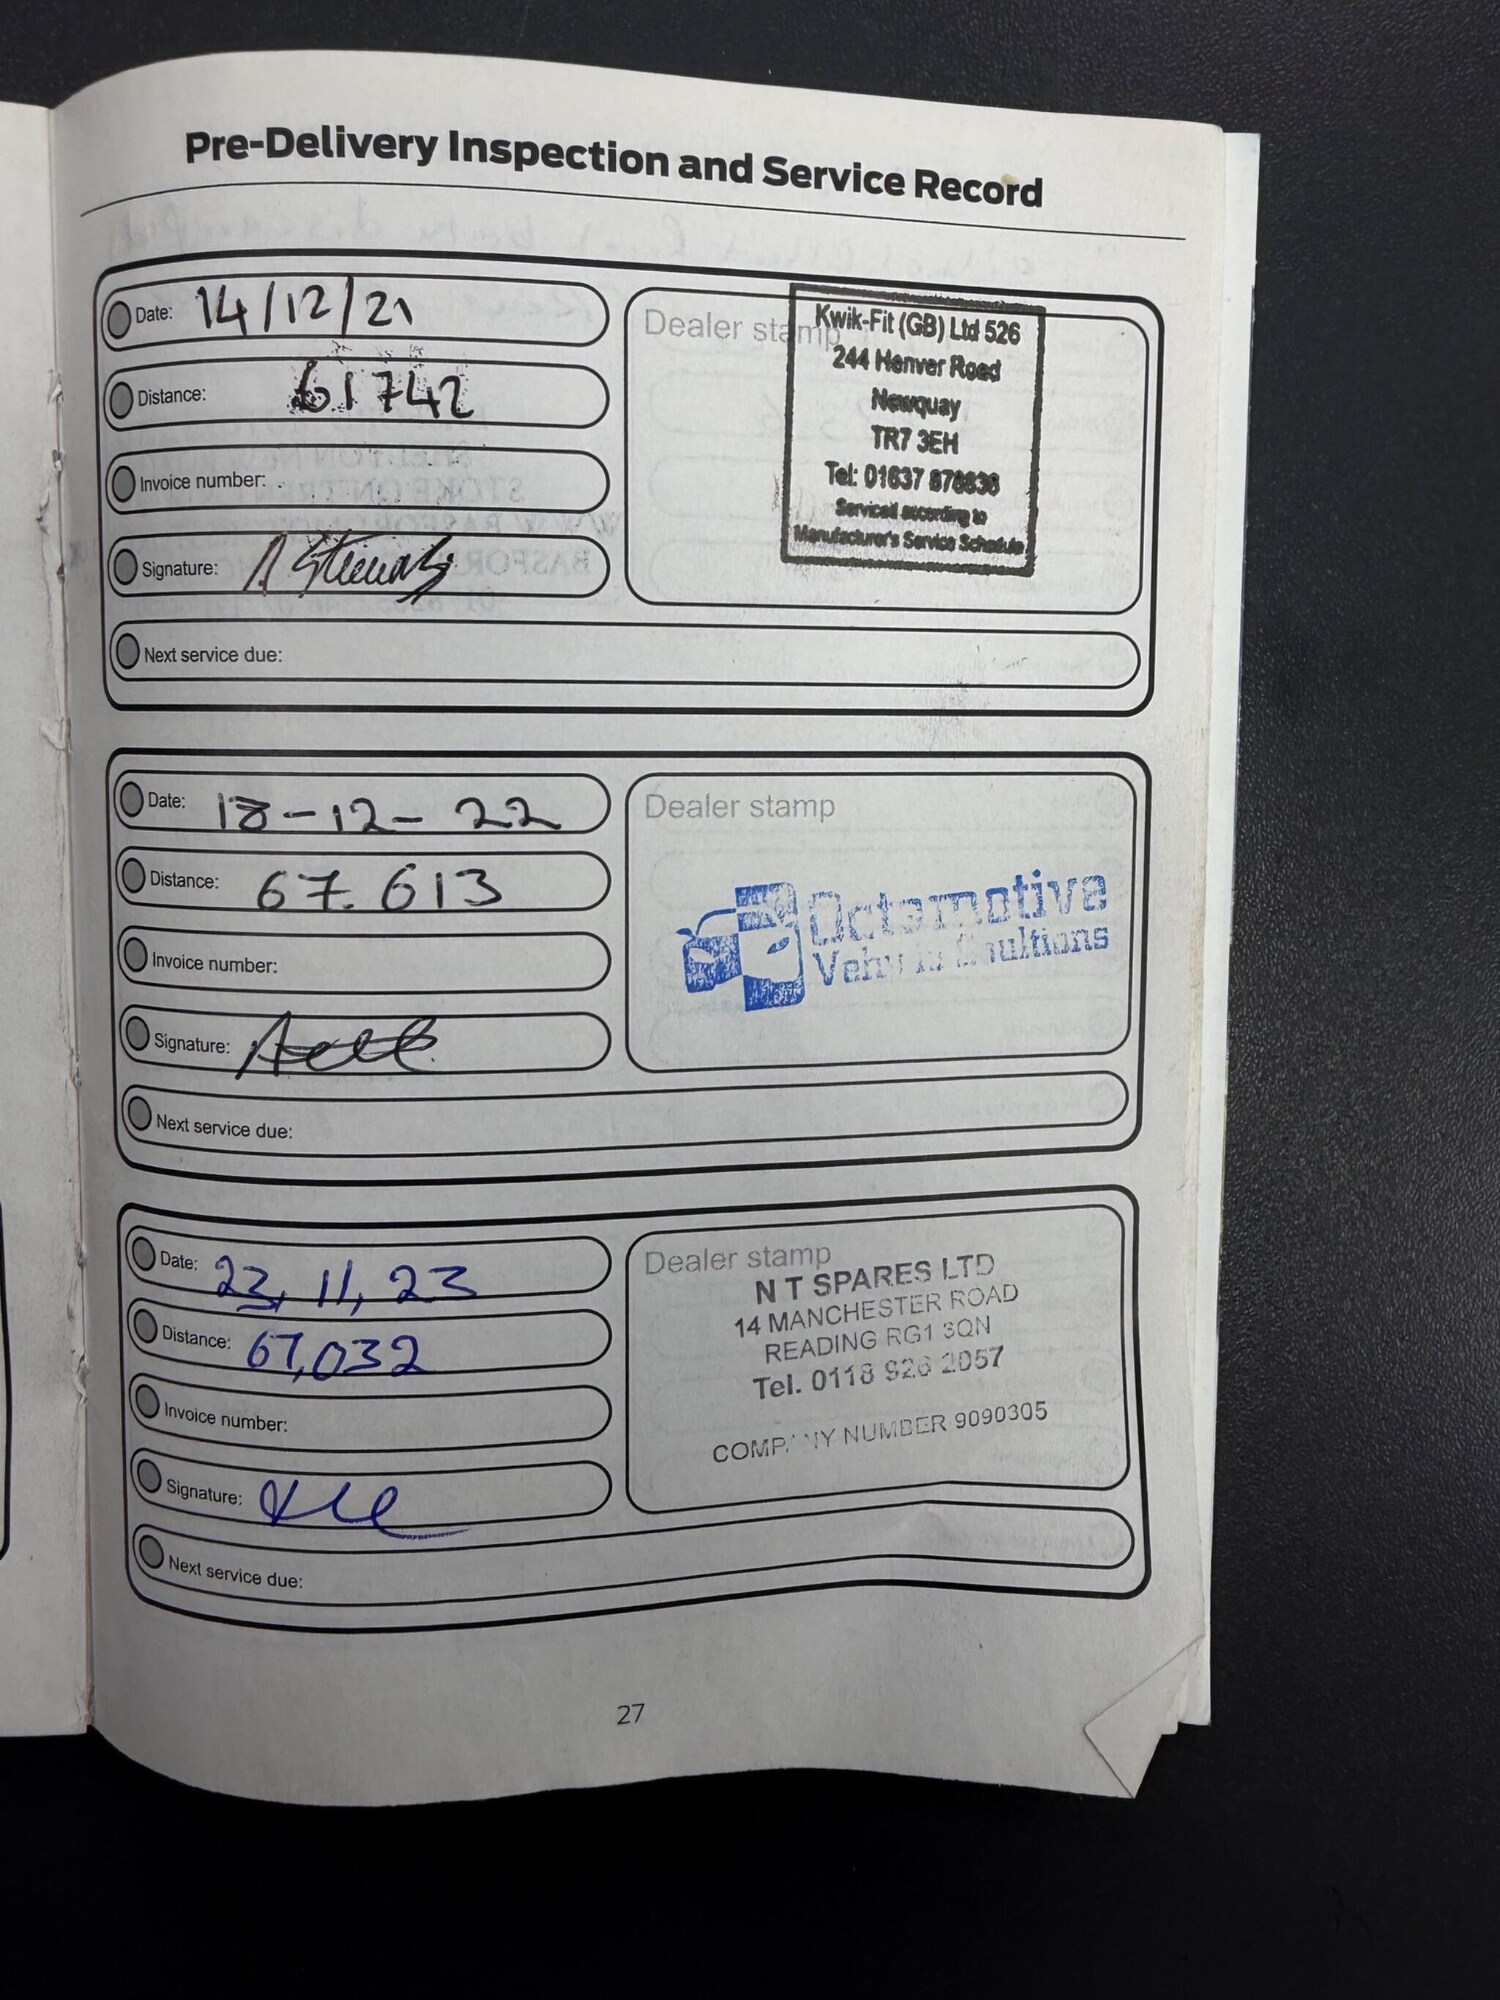 Pre-Delivery Inspection and Service Record
Date: 14/12/21
Distance: 61742
Invoice number:
Signature:
Next service due:
Dealer stamp
Kwik-Fit (GB) Ltd 526
244 Henver Road
Newquay
TR7 3EH
Tel: 01637 878636
Serviced according to
Manufacturer's Service Schedule
Date: 18-12-22
Distance: 67.613
Invoice number:
Signature:
Next service due:
Dealer stamp
Octomotive
Date: 23, 11, 23
Distance: 67,032
Invoice number:
Signature:
Next service due:
Dealer stamp
N T SPARES LTD
14 MANCHESTER ROAD
READING RG1 3QN
Tel. 0118 926 2057
COMPANY NUMBER 9090305
27